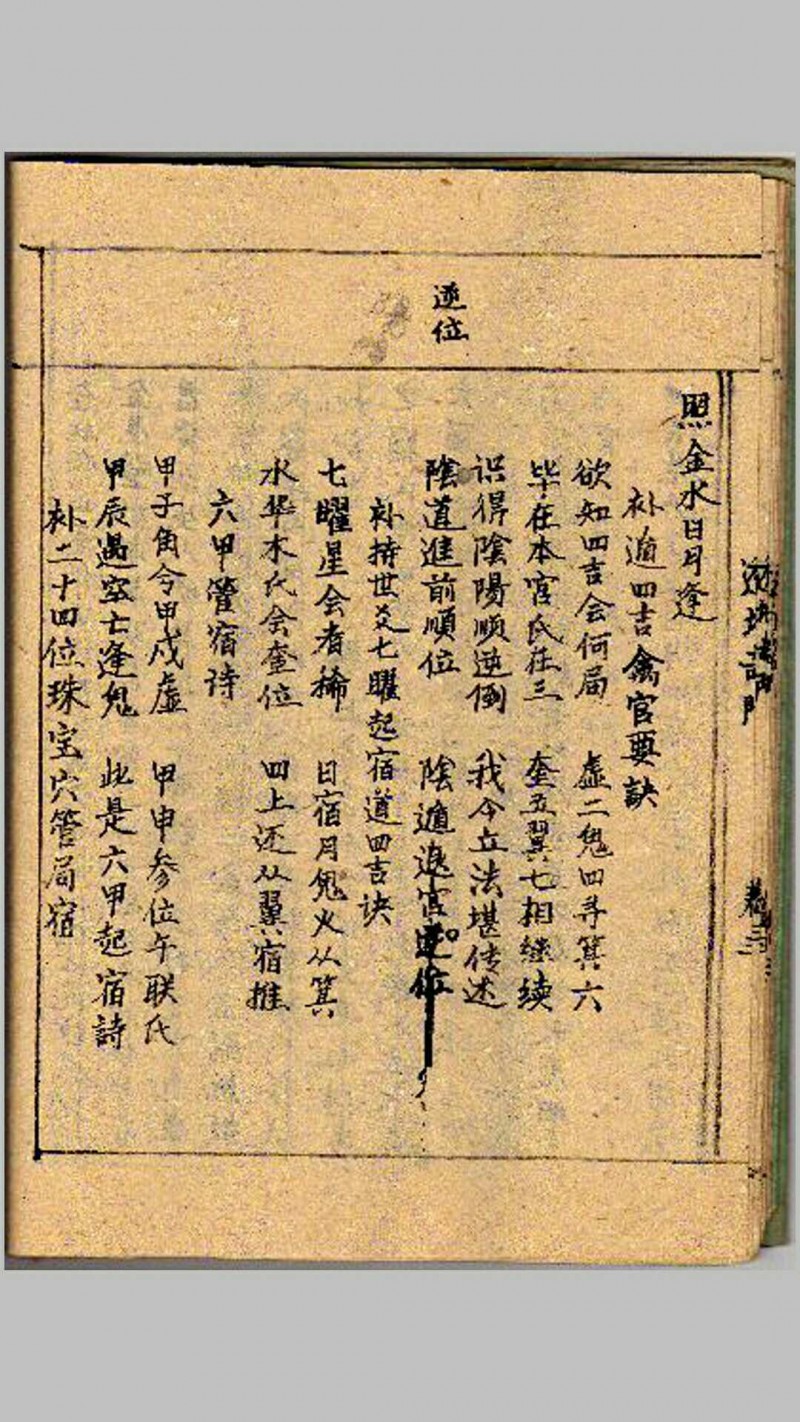 逆位
照金水日月逢
补遁四吉禽官要訣
欲知四吉会何局 虚二鬼四寻箕六
毕在本官氐在三 奎五翼七相继续
识得陰陽順逆倒 我今立法堪传述
陰道進前順位 陰遁退官逆位
补持世爻七曜起宿道四吉诀
七曜星会者稀 日宿月鬼火从箕
水毕木氐会奎位 四上还从翼宿推
六甲管宿诗
甲子角令甲戍虚 甲申参位午联氐
甲辰遇空亡逢鬼 此是六甲起宿詩
补二十四位珠宝穴管局宿